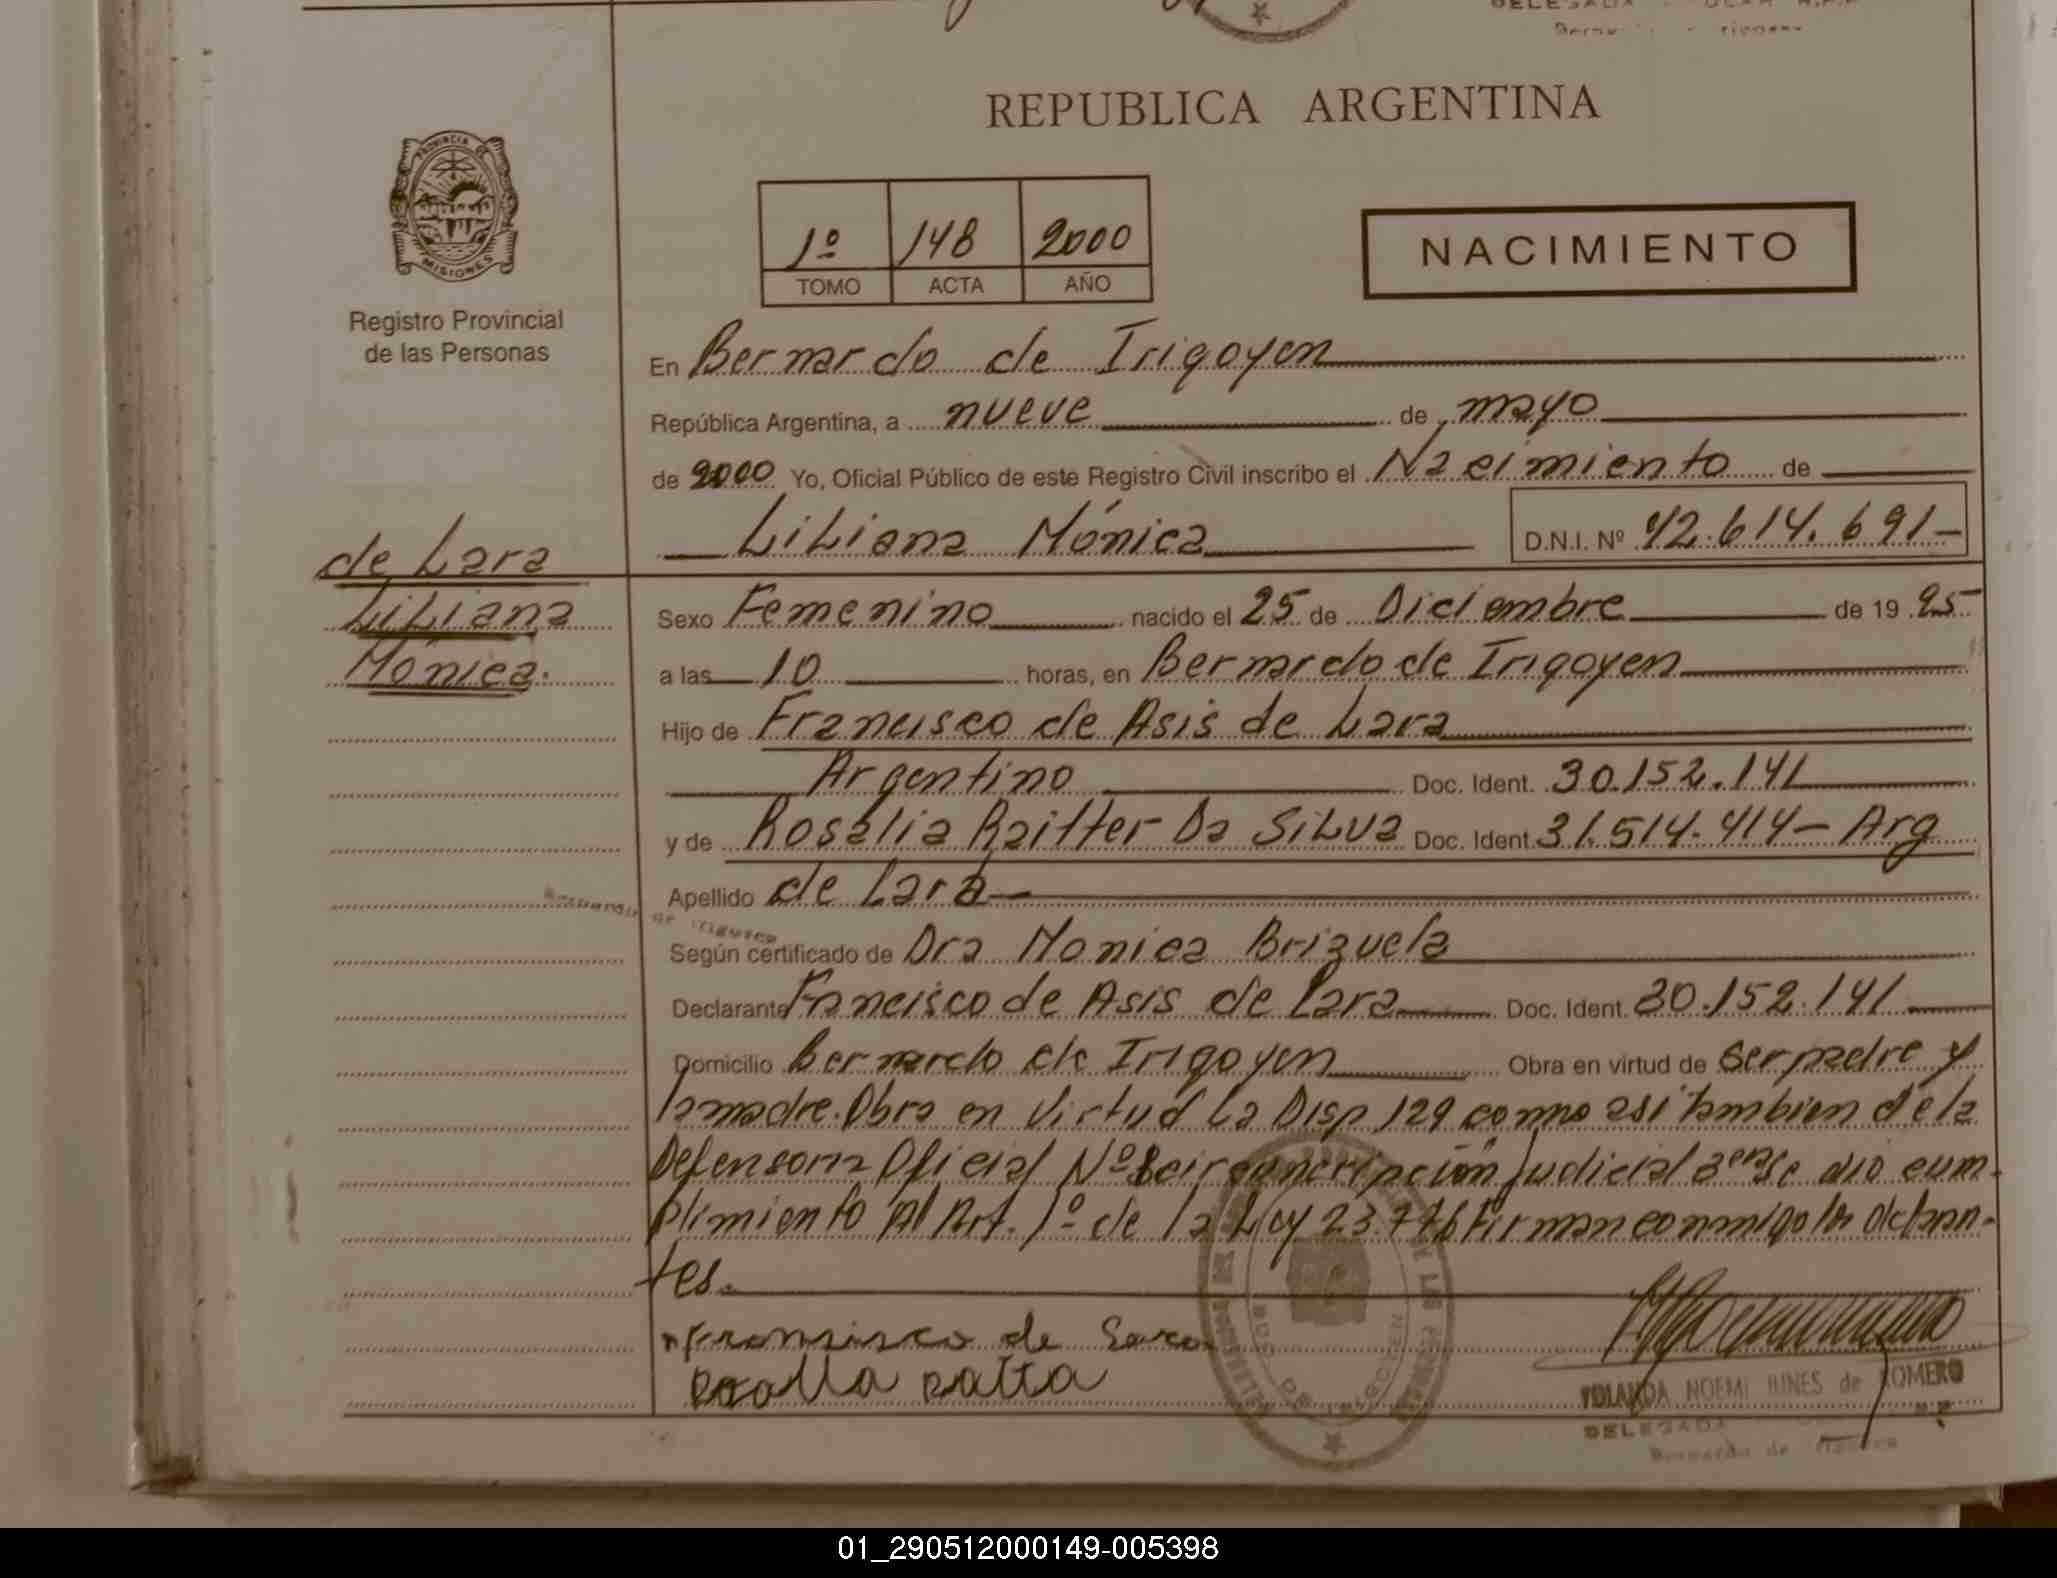 REPUBLICA ARGENTINA
PROVINCIA DE
MISIONES
Registro Provincial
de las Personas
1º 148 2000
TOMO ACTA AÑO
NACIMIENTO
En Bernardo de Irigoyen
República Argentina, a nueve de mayo
de 2000 Yo, Oficial Público de este Registro Civil inscribo el Nacimiento de
Liliana Mónica D.N.I. Nº 42.614.691-
de Lara
Liliana
Mónica.
Sexo Femenino nacido el 25 de Diciembre de 19 95
a las 10 horas, en Bernardo de Irigoyen
Hijo de Francisco de Asis de Lara
Argentino Doc. Ident. 30.152.141
y de Rosalia Raitter Da Silva Doc. Ident. 31.514.414- Arg
Apellido de Lara-
Según certificado de Dra Monica Brizuela
Declarante Francisco de Asis de Lara Doc. Ident. 30.152.141
Domicilio Bernardo de Irigoyen Obra en virtud de ser padre y
la madre. Obra en virtud La Disp 129 como asi tambien de la
Defensoria Oficial Nº circuncripción Judicial 3era se dio cum-
plimiento Al Art. 1º de la Ley 23.776 firman conmigo los
tes.
de
YOLANDA NOEMI de ROMERO
DELEGADA
Bernardo de
01_290512000149-005398